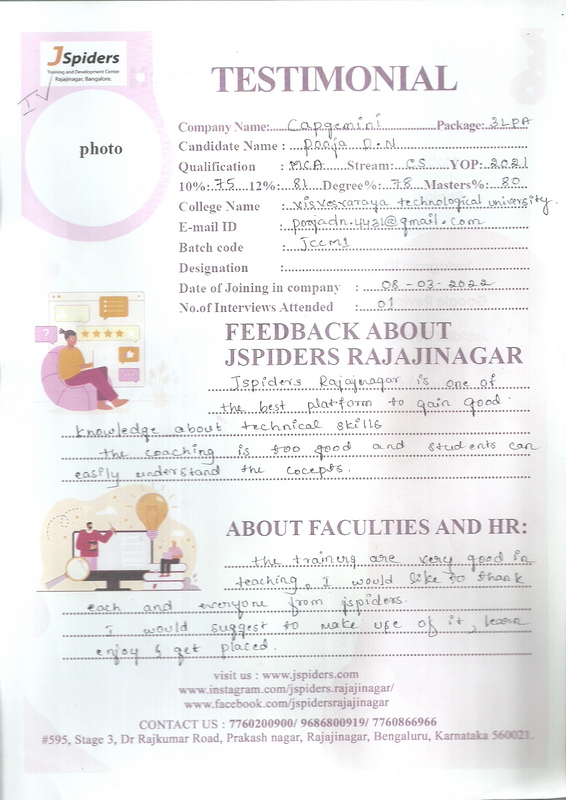 JSpiders
Training and Development Center
Rajajinagar, Bangalore.
IV
photo
TESTIMONIAL
Company Name: Capgemini Package: 3LPA
Candidate Name : Pooja D.N
Qualification : MCA Stream: CS YOP: 2021
10%: 75 12%: 81 Degree%: 78 Masters%: 80
College Name : visvesvaraya technological university.
E-mail ID : poojadn.4431@gmail.com
Batch code : JCCM1
Designation :
Date of Joining in company : 08-03-2022
No.of Interviews Attended : 01
FEEDBACK ABOUT
JSPIDERS RAJAJINAGAR
Jspiders Rajajenagar is one of
the best platform to gain good
knowledge about technical skills
the coaching is too good and students can
easily understand the cocepts.
ABOUT FACULTIES AND HR:
the trainers are very good in
teaching, I would like to thank
each and everyone from jspiders.
I would suggest to make use of it, learn
enjoy & get placed.
visit us : www.jspiders.com
www.instagram.com/jspiders.rajajinagar/
www.facebook.com/jspidersrajajinagar
CONTACT US : 7760200900/ 9686800919/ 7760866966
#595, Stage 3, Dr Rajkumar Road, Prakash nagar, Rajajinagar, Bengaluru, Karnataka 560021.